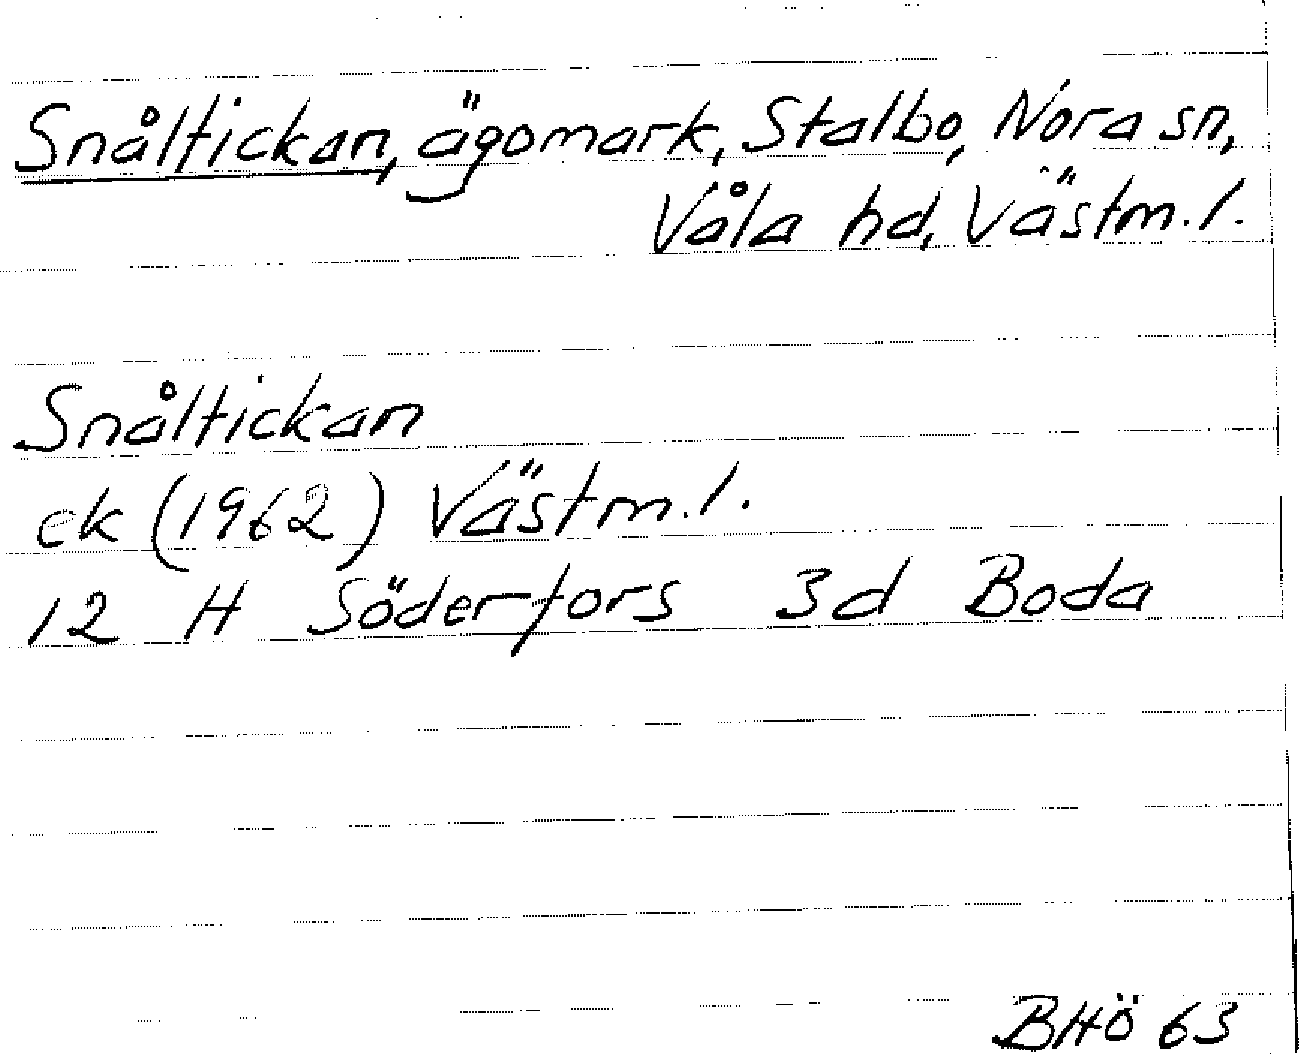 Snåltickan, ägomark, Stalbo, Nora sn,
Våla hd, Västm. l.
Snåltickan
ek (1962) Västm. l.
12 H Söderfors 3d Boda
BHÖ 63